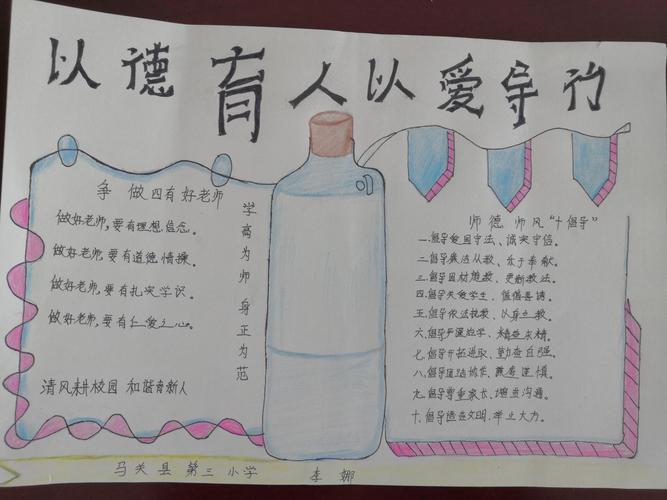 以德育人以爱导行
争 做四有好老师
做好老师,要有理想信念。
做好老师,要有道德情操。
做好老师,要有扎实学识。
做好老师,要有仁爱之心。
清风耕校园 和谐育新人
学高为师 身正为范
师德师风“十倡导”
一.倡导爱国守法、诚实守信。
二.倡导廉洁从教、乐于奉献。
三.倡导因材施教、更新教法。
四.倡导关爱学生、循循善诱。
五.倡导依法执教、以身立教。
六.倡导严谨治学、精益求精。
七.倡导开拓进取、勤奋自强。
八.倡导团结协作、
九.倡导尊重家长、增进沟通。
十.倡导 文明、 大方。
马关县 第三小学 李娜